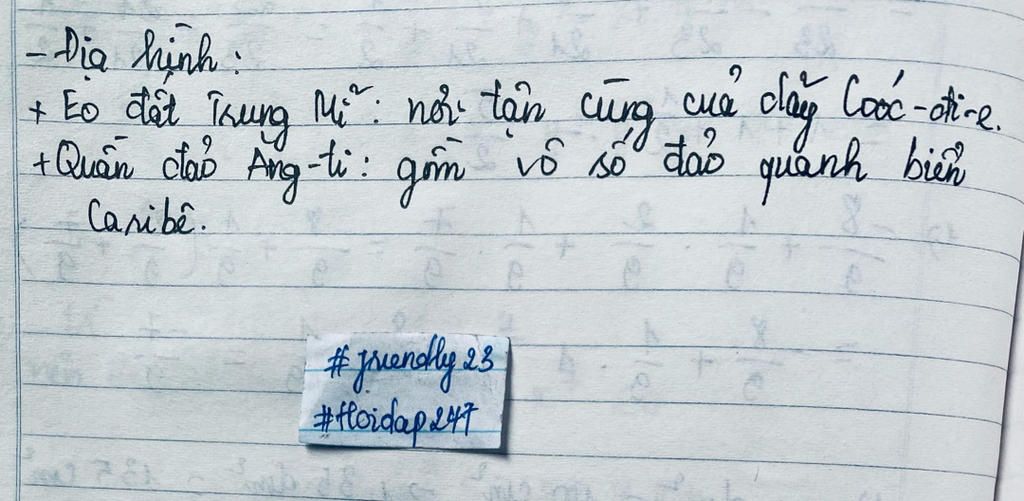 - Địa hình:
+ Eo đất Trung Mĩ: nơi tận cùng của dãy Coóc-đi-e.
+ Quần đảo Ăng-ti: gồm vô số đảo quanh biển
Caribê.
#friendly23
#Hoidap247